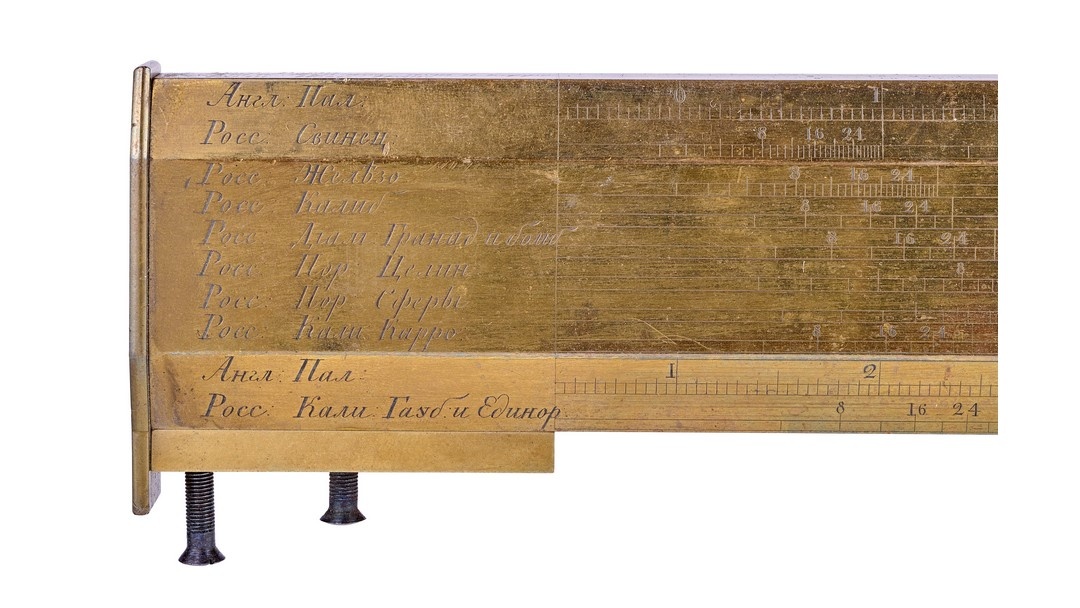 Англ: Пал: 0 1
Росс: Свинец: 8 16 24
Росс: Желѣзо 8 16 24
Росс: Калиб: 8 16 24
Росс: Діам: Гранад: и бомб 8 16 24
Росс: Пор: Целин: 8
Росс: Пор: Сферы
Росс: Кали: Карро 8 16 24
Англ: Пал: 1 2
Росс: Кали: Гауб: и Единор. 8 16 24